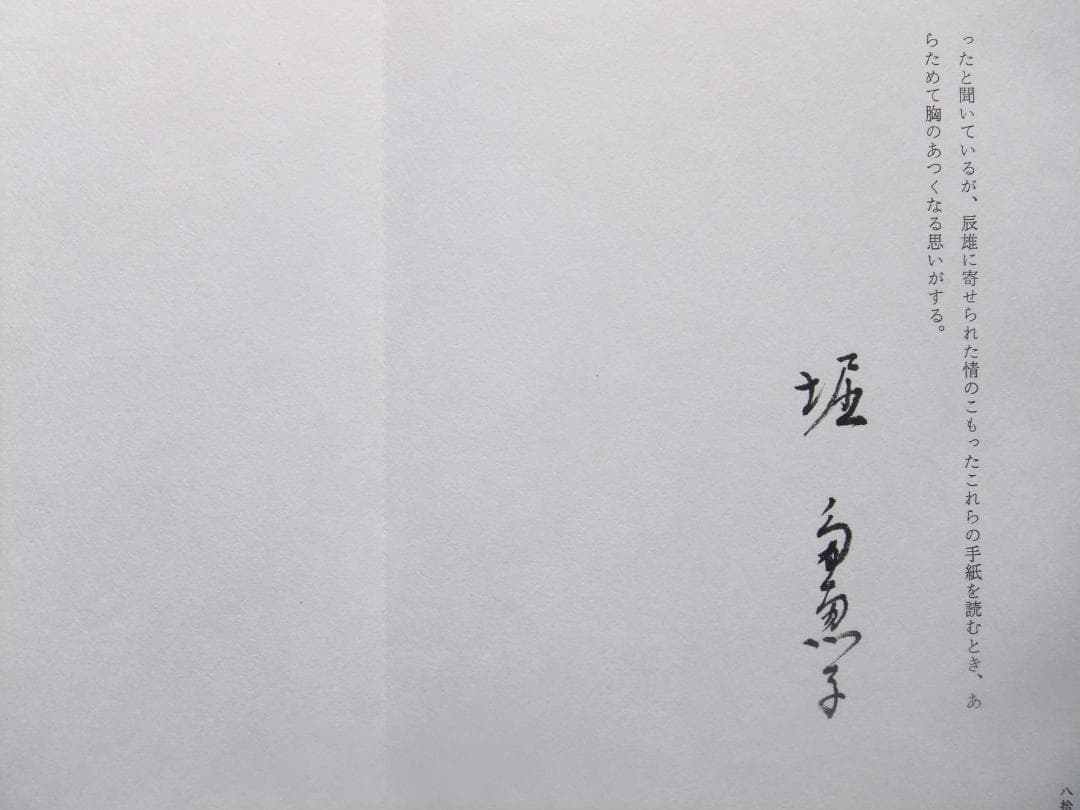 ったと聞いているが、辰雄に寄せられた情のこもったこれらの手紙を読むとき、あ
らためて胸のあつくなる思いがする。
堀 多恵子
八拾